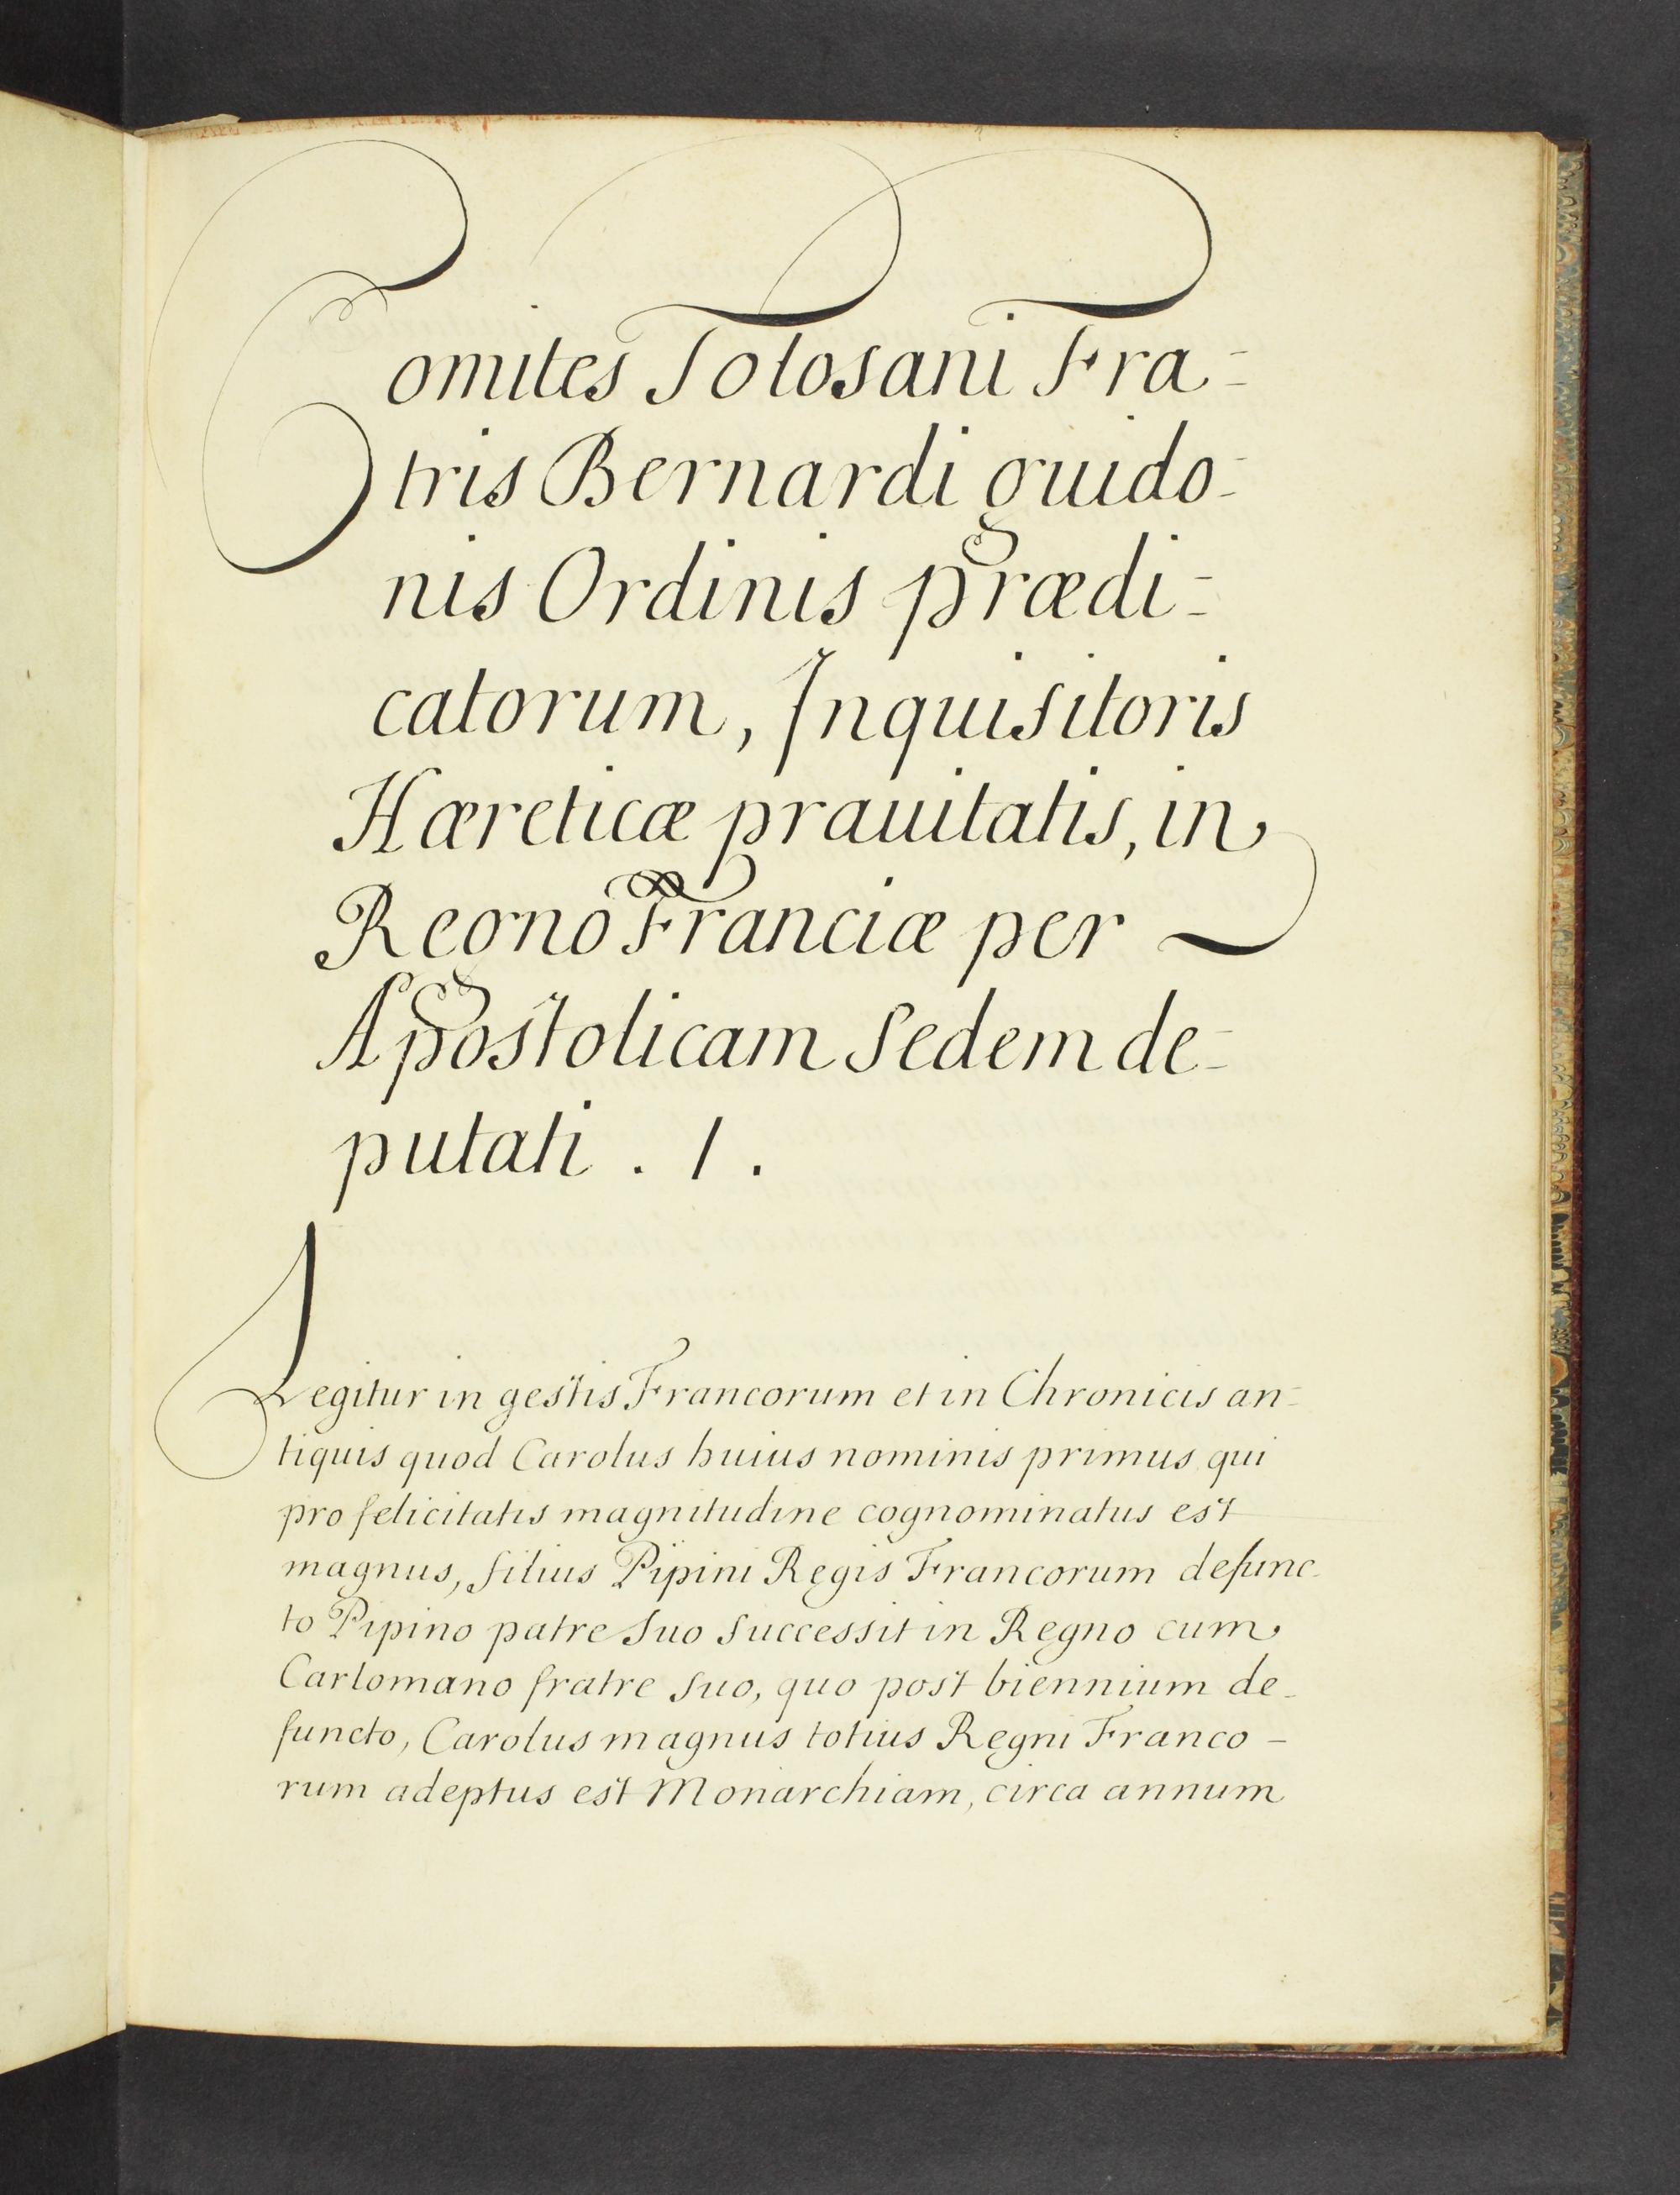 Comites Tolosani Fra=
tris Bernardi guido-
nis Ordinis prædi=
catorum, Inquisitoris
Hæreticæ prauitatis, in
Regno Franciæ per
Apostolicam Sedem de-
putati . 1 .
Legitur in gestis Francorum et in Chronicis an=
tiquis quod Carolus huius nominis primus qui
pro felicitatis magnitudine cognominatus est
magnus, filius Pipini Regis Francorum defunc-
to Pipino patre suo successit in Regno cum
Carlomano fratre suo, quo post biennium de-
functo, Carolus magnus totius Regni Franco-
rum adeptus est Monarchiam, circa annum